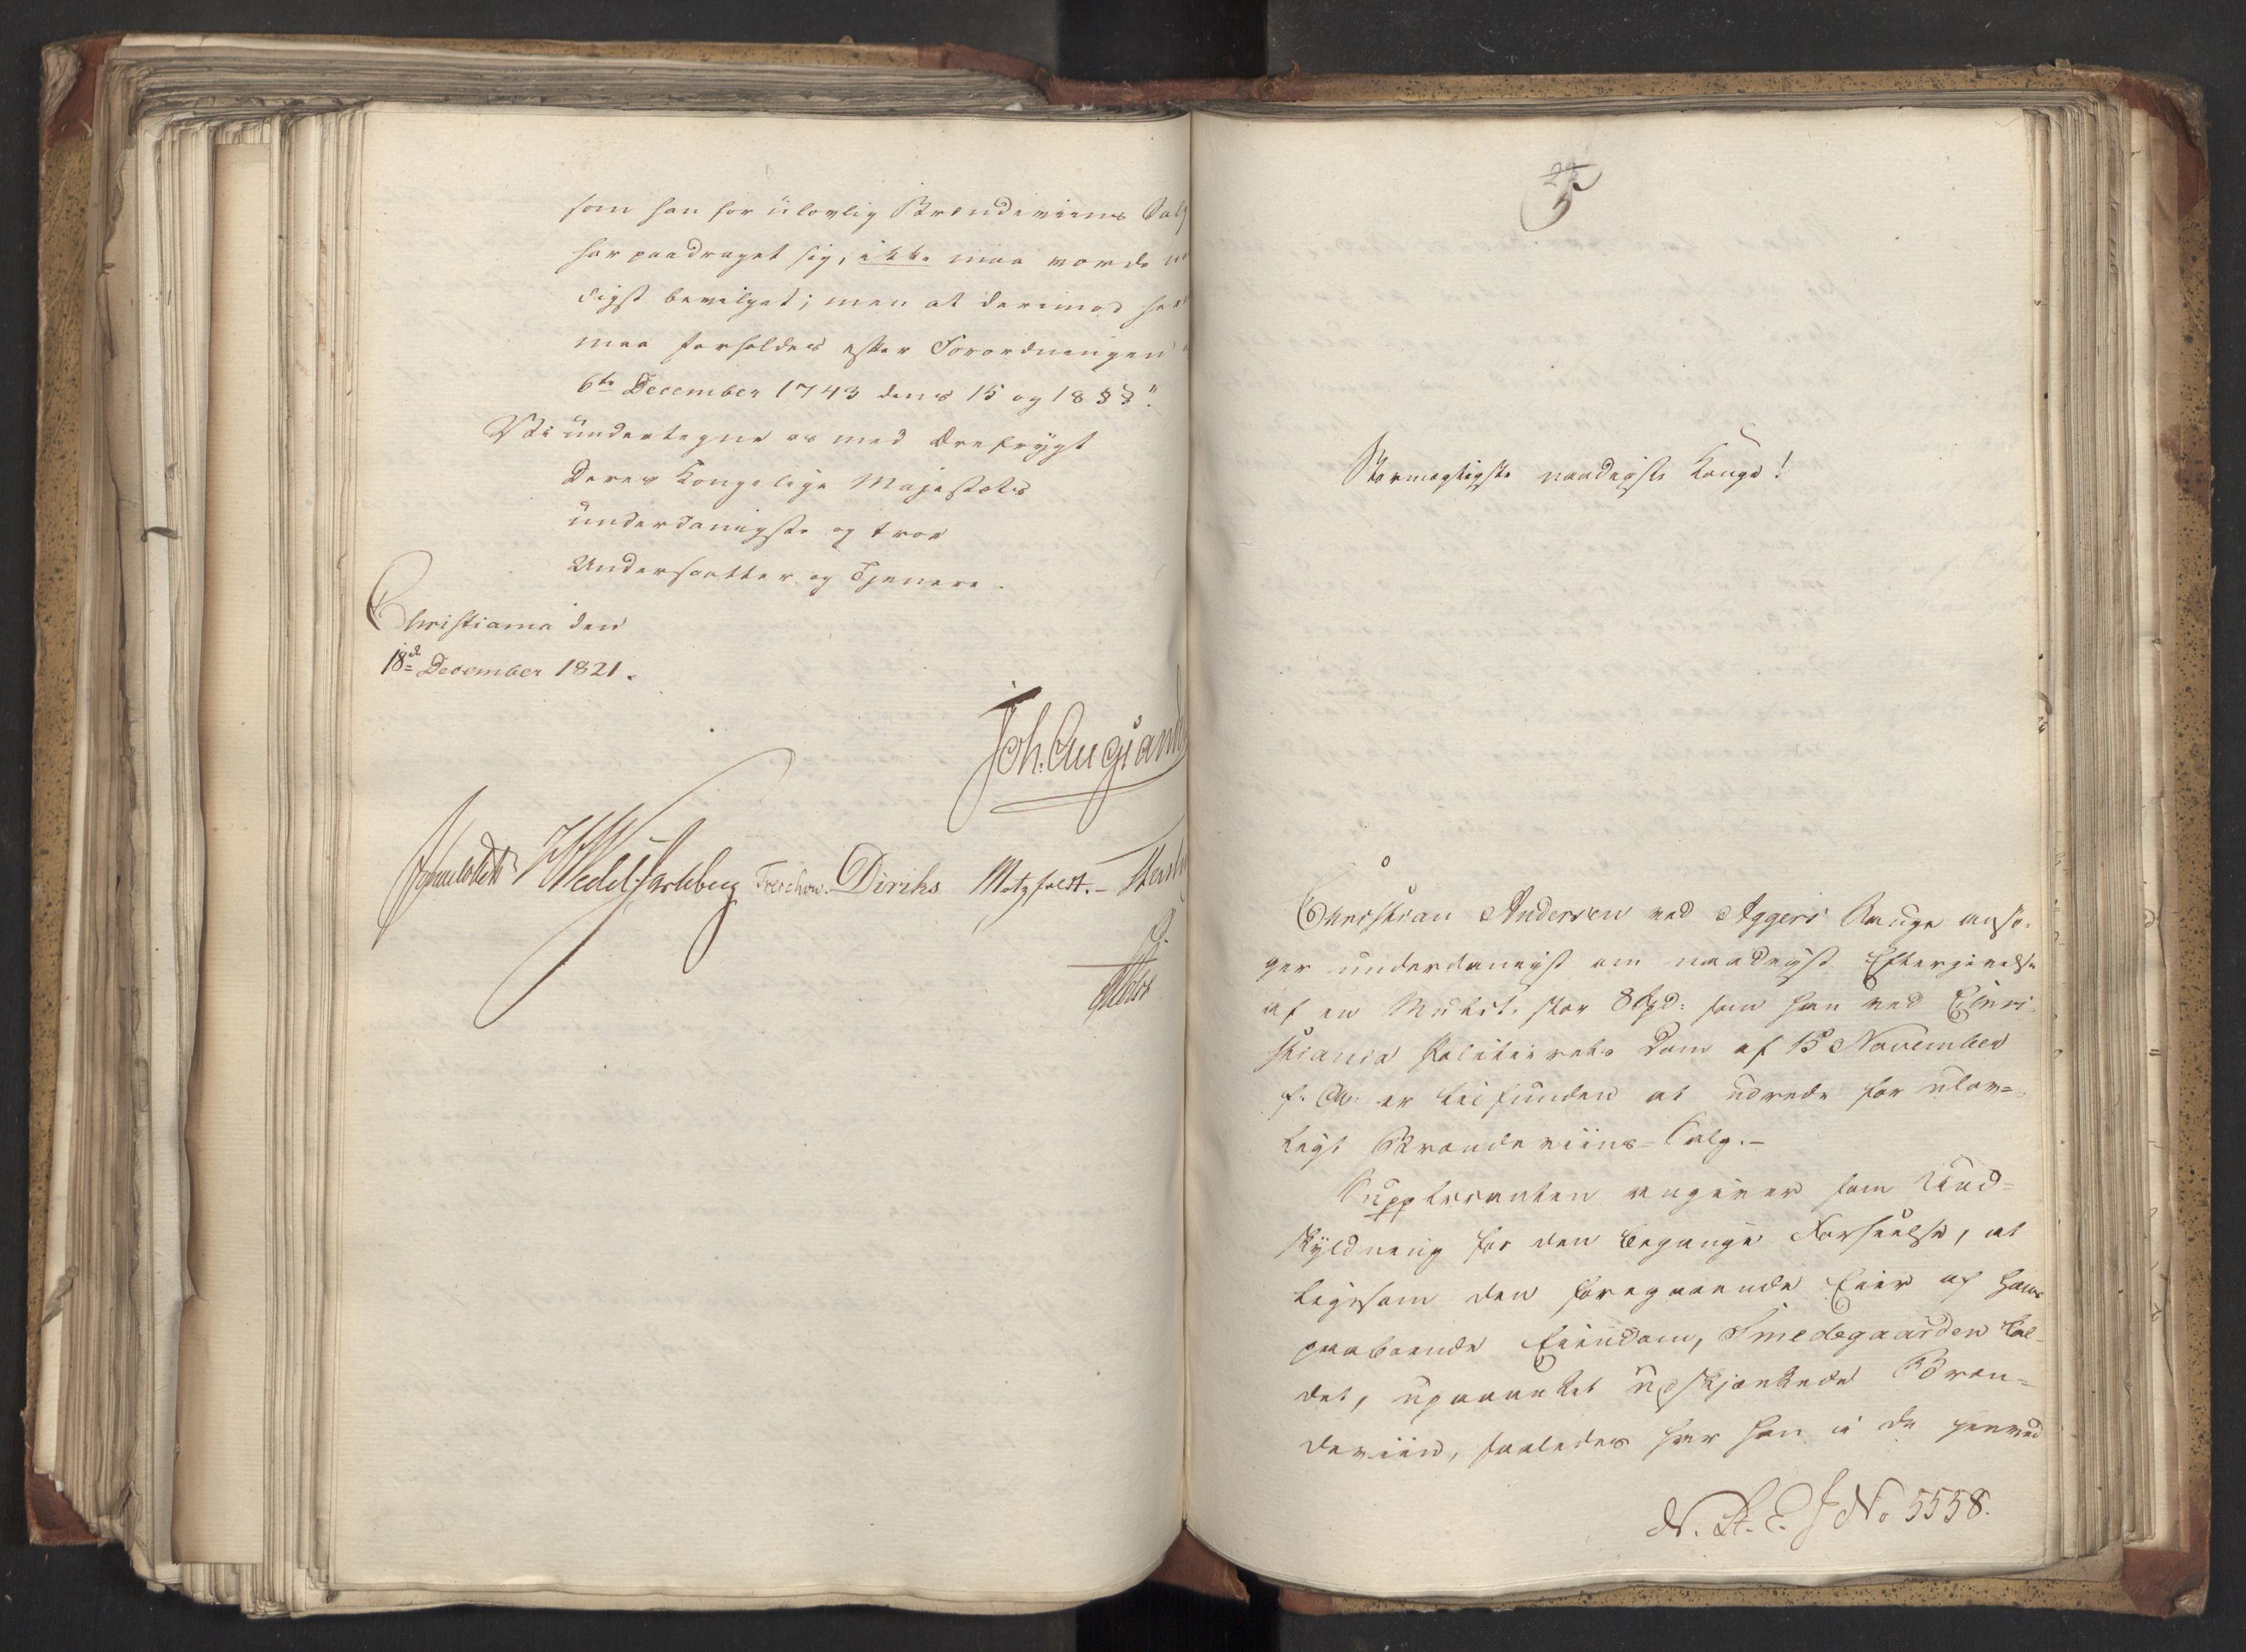 som han for ulovlig Brændeviins Salg
har paadraget sig, ikke maa vorde
digst bevilget; men at derimod her
maa forholdes efter Forordningen
6te December 1743 dens 15 og 18 §§".
Vi undertegne os med Ærefrygt
Deres Kongelige Majestæts
underdanigste og troe
Undersaatter og Tjenere.
Christiania den
18de December 1821.
Joh. Aug Sand
Sommerhielm HWedel Jarlsberg Treschow. Diriks Motzfeldt.-
25
Stormægtigste naadigste Konge!
Christian Andersen ved Aggers Kirke ansø-
ger underdanigst om naadigst Eftergivelse
af en Mulct, stor 8 Spd: som han ved Chri-
stiania Politierets Dom af 15 November
f: A: er tilfunden at udrede for ulov=
ligt Brændeviins-Salg.-
Supplicanten angiver som Und=
skyldning for den begangne Forseelse, at
ligesom den foregaaende Eier af hans
paaboende Eiendom, Smedegaarden kal-
det, upaaanket udskjænkede Bræn=
deviin, saaledes har han i de
N. St. E. J No 5558.